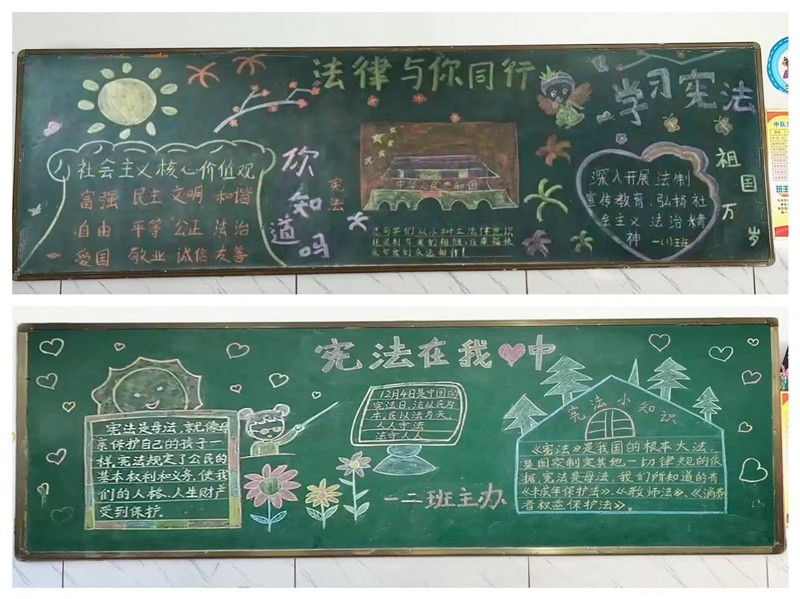 法律与你同行
学习宪法
社会主义核心价值观
富强 民主 文明 和谐
自由 平等 公正 法治
爱国 敬业 诚信 友善
你知道吗
宪法
中华人民共和国
深入开展法制
宣传教育,弘扬社
会主义法治精
神
祖国万岁
宪法在我中
宪法是母法,就像母
亲保护自己的孩子一
样,宪法规定了公民的
基本权利和义务,使我
们的人格、人生财产
受到保护.
12月4日是中国的
宪法日,法以民为
本,民以法为天,
人人守法
法守人人
一二班主办
宪法小知识
《宪法》是我国的根本大法,
是国家制定其他一切律规的依
据,宪法是母法,我们所知道的有
《未成年保护法》、《教师法》、《消费
者权益保护法》。